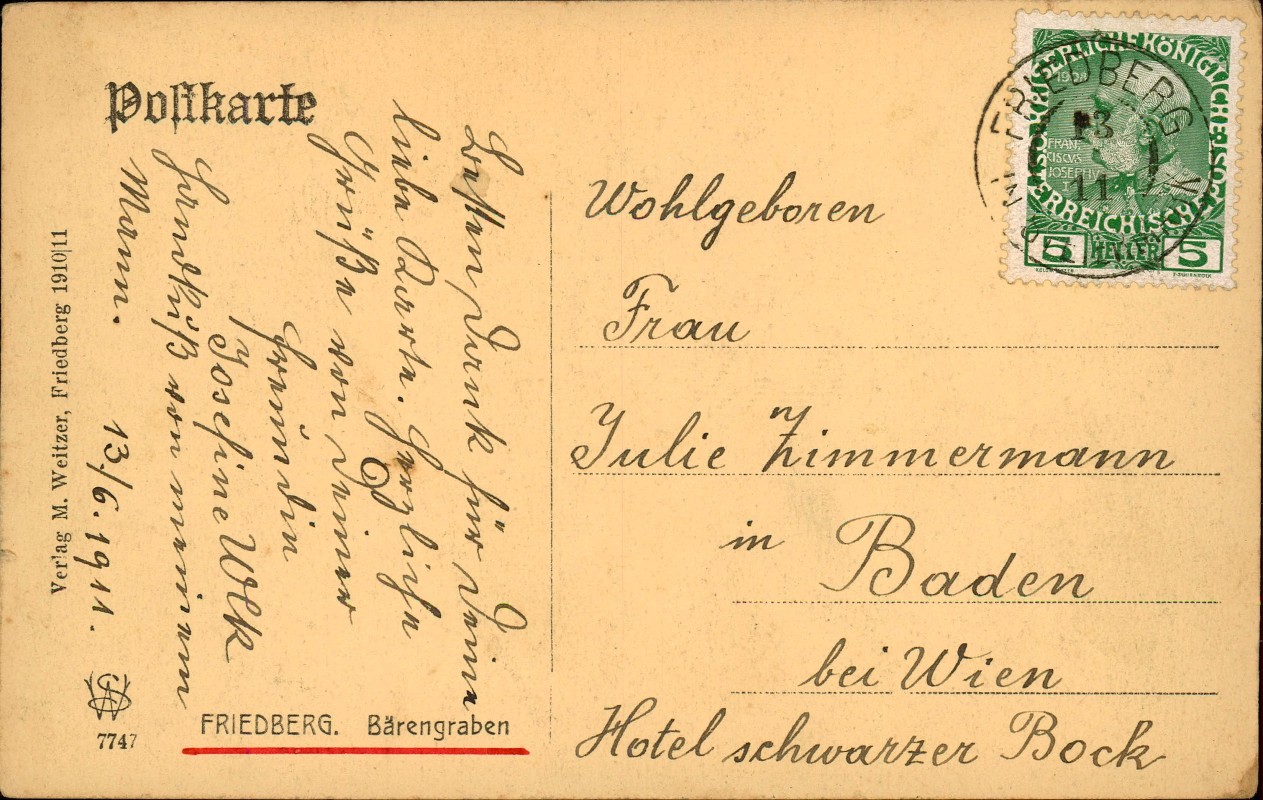 Postkarte
Besten Dank für Deine
liebe Karte. Herzliche
Grüße von Deiner
Freundin
Josefine Wlk
Handküß von meinem
Mann.
13/6. 1911.
Verlag M. Weitzer, Friedberg 1910|11
7747
FRIEDBERG. Bärengraben
KAISERLICHE KÖNIGLICHE
ÖSTERREICHISCHE
1908
FRAN
CISCVS
JOSEPHVS
I
5 HELLER 5
FRIEDBERG
13
11
Wohlgeboren
Frau
Julie Zimmermann
in Baden
bei Wien
Hotel schwarzer Bock